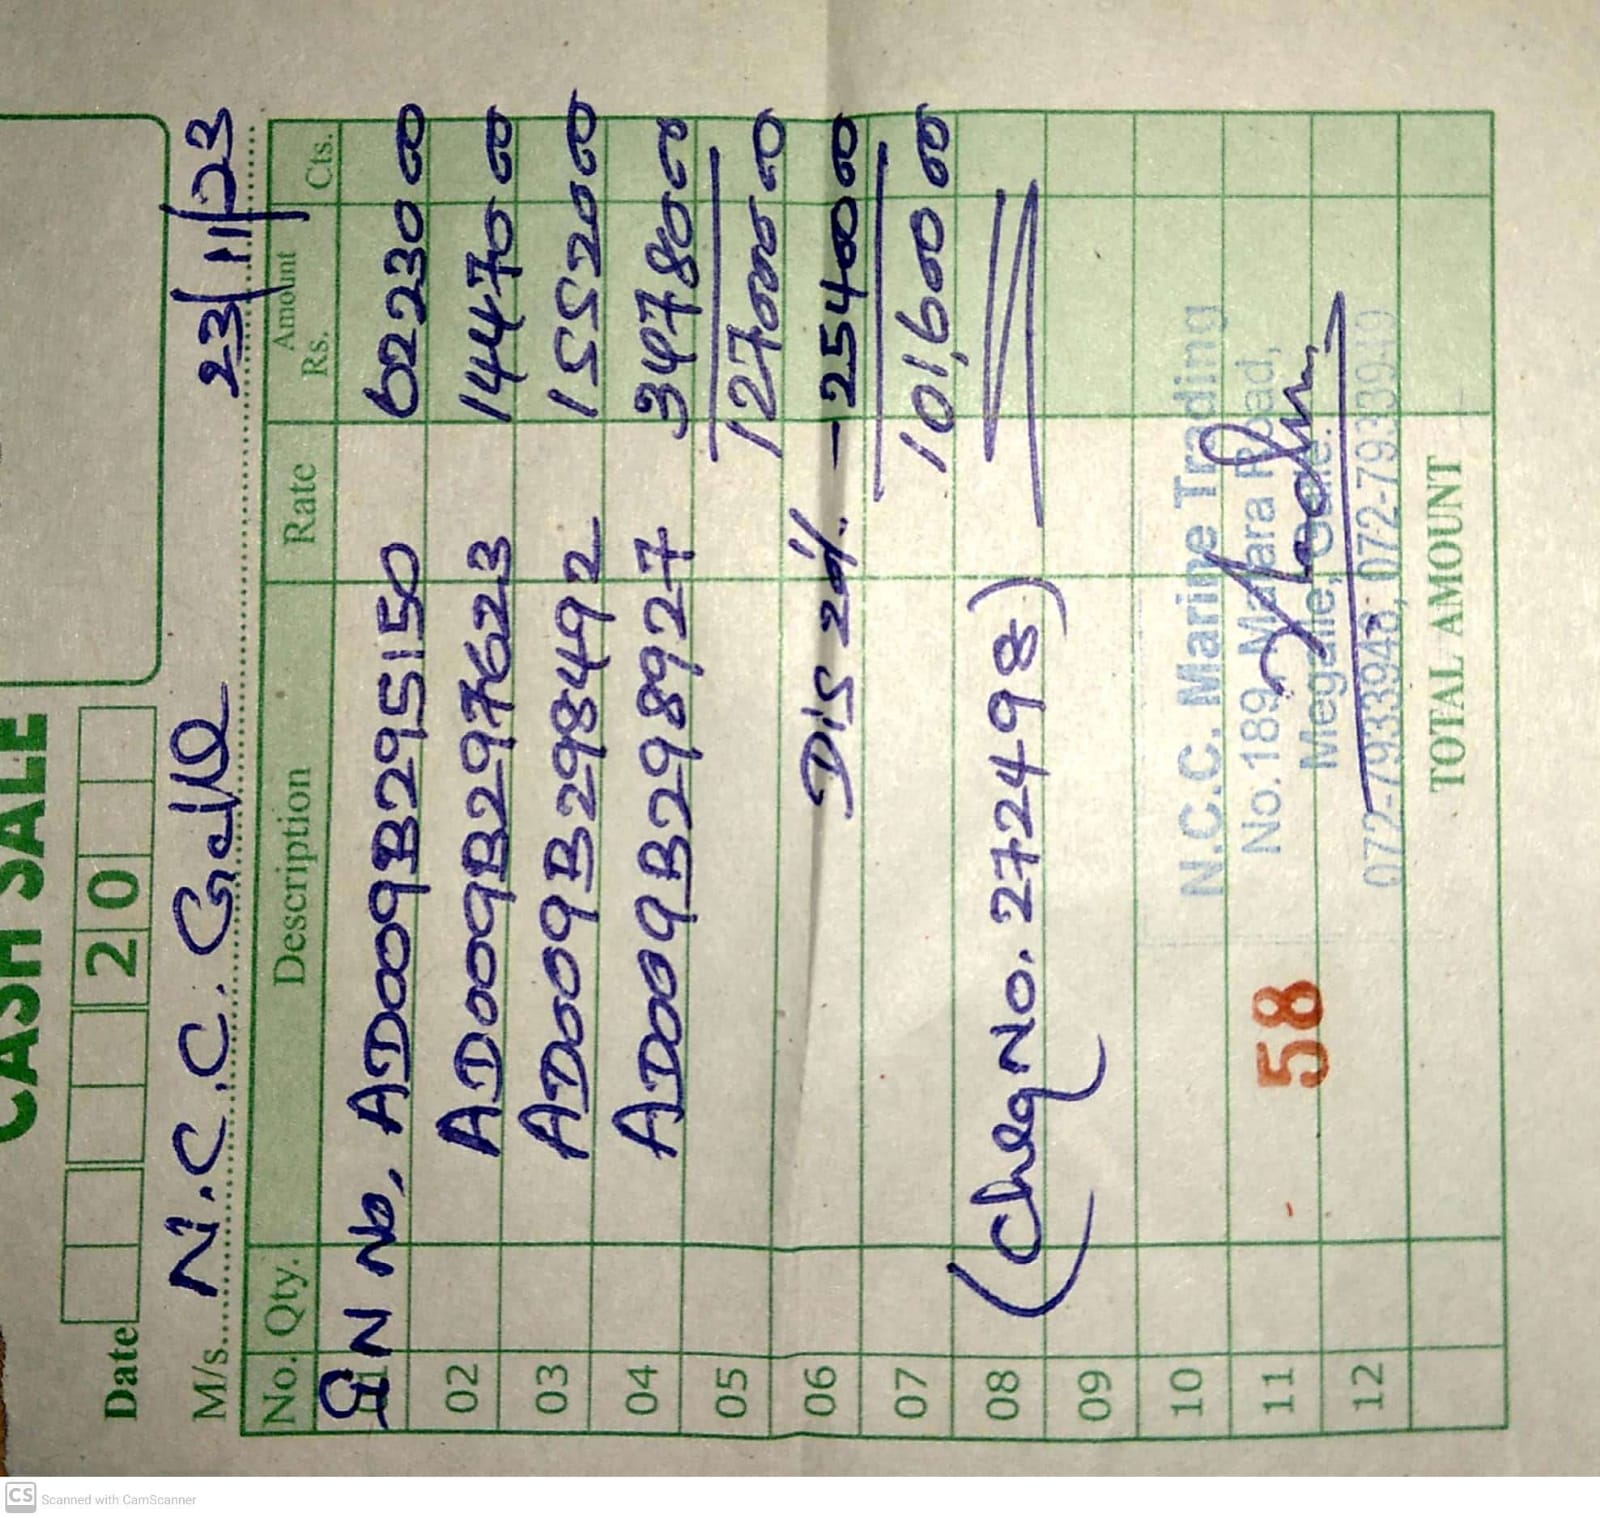 CASH SALE
Date 20
M/s. N.C.C. Galle 23/11/23
No. Qty. Description Rate Amount Rs. Cts.
01 GIN No. AD009B295150 62230 00
02 AD009B297623 14470 00
03 AD009B298492 15520 00
04 AD009B298927 34780 00
05 127000 00
06 Dis 20% -25400 00
07 101,600 00
08 (Cheq No. 272498)
09
10 N.C.C. Marine Trading
11 58 No.189, Matara Road,
Megalle, Galle.
12 072-7933948, 072-7933949
TOTAL AMOUNT
CS Scanned with CamScanner